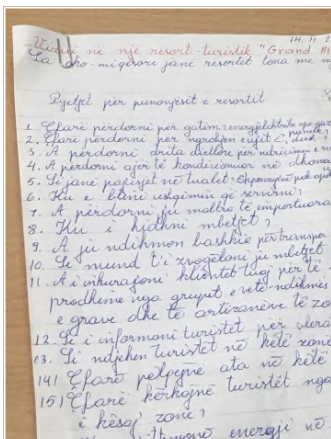 14.11.2
Vizitë në një resort-turistik "Grand M
Sa eko-miqësore janë resortet tona me m
Pyetjet për punonjësit e resortit
1. Çfarë përdorni për gatim: energji elektrike apo gaz
2. Çfarë përdorni për ngrohjen e ujit?, diell
panele
3. A përdorni drita diellore për ndriçimin e res
4. A përdorni ajër të kondicionuar në dhoma
5. Si janë pajisjet në tualet:
6. Ku e blini ushqimin që servirni?
7. A përdorni ju mallra të importuara
8. Ku i hidhni mbetjet?
9. A ju ndihmon bashkia për transpor
10. Si mund t'i zvogëloni ju mbetjet
11. A i inkurajoni klientët tuaj për të
prodhime nga grupet e vetë-ndihmës
e grave dhe të artizanëve të zo
12. Si i informoni turistët për vlera
13. Si ndjehen turistët në këtë zonë
14) Çfarë pëlqejnë ata në këtë
15) Çfarë kërkojnë turistët nga
e kësaj zone?
energji në